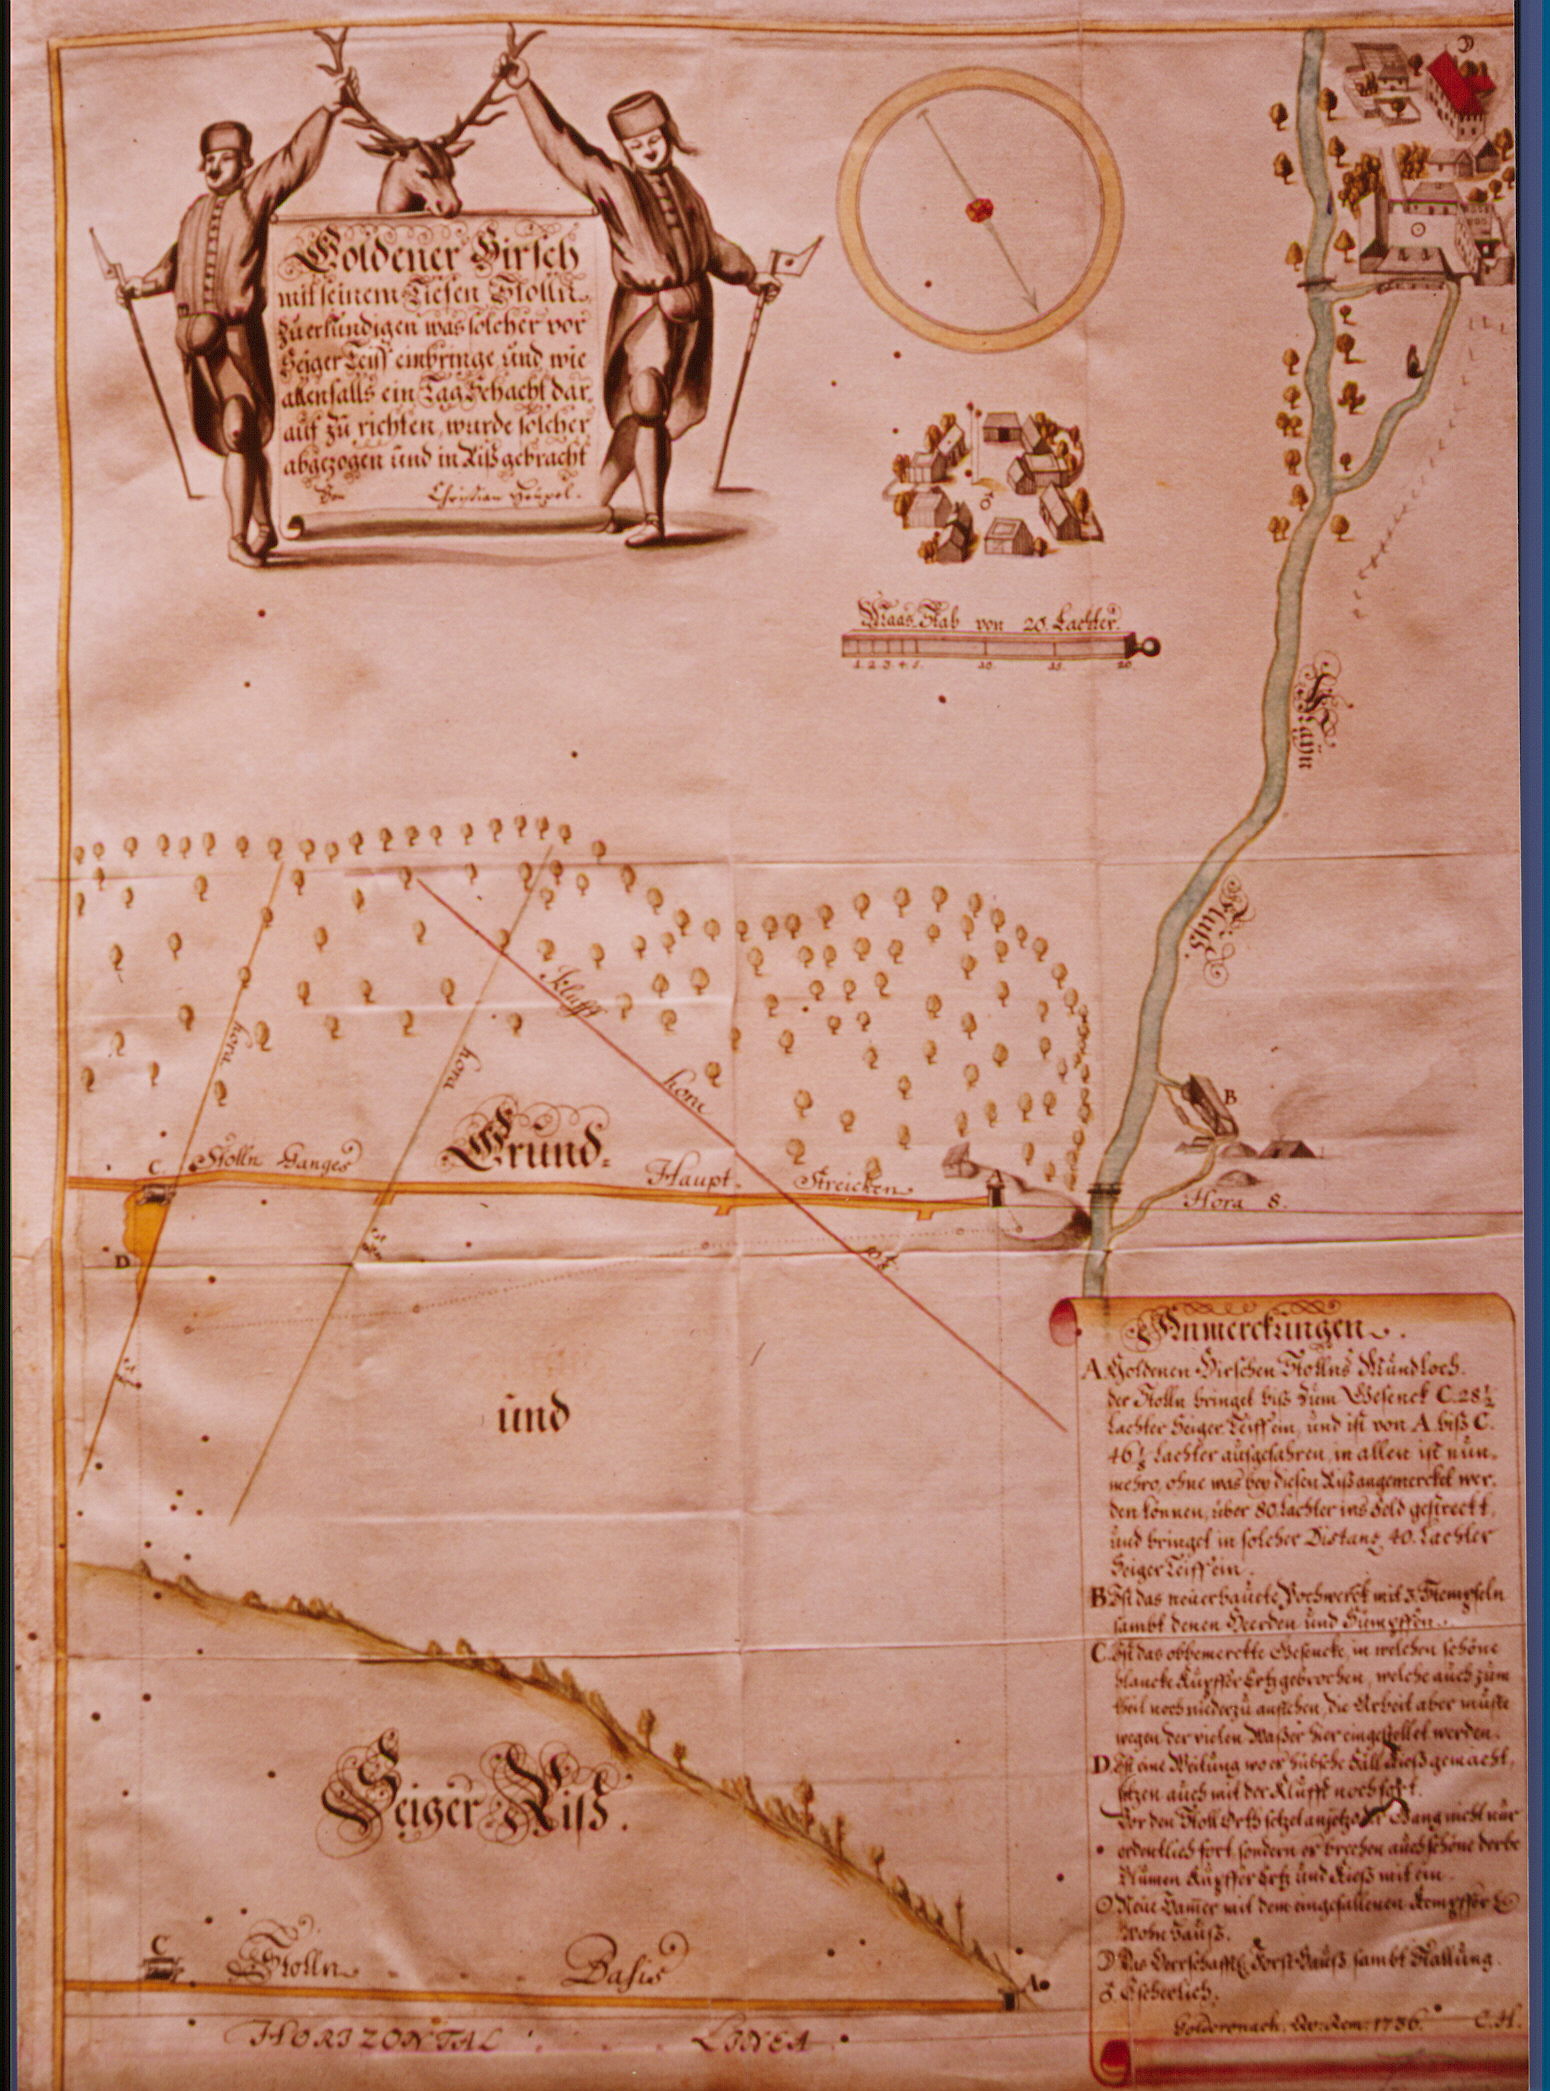 Goldener Hirsch
mit seinem Tiefen Stolln
zu erkundigen was solcher vor
Seiger Teiff einbringe und wie
allenfalls ein Tag Schacht dar,
auf zu richten, wurde solcher
abgezogen und in Riß gebracht
Von Christian Heupel.
Maas Stab von 20. Lachter.
1. 2. 3. 4. 5. 10. 15. 20.
Mayn
Fluß.
Klufft
hora
hora
hora
10 1/8
B
C
Stolln Ganges
Grund=
Haupt Streichen
A
Hora 8.
D
und
Seiger Riß.
C
Stolln
Basis
A
HORIZONTAL LINEA
Anmerckungen.
A Goldenen Hirschen Stollns Mundloch.
der Stolln bringet biß zum Gesenck C. 28 1/2
Lachter Seiger Teiff ein, und ist von A biß C.
46 1/8 Lachter aufgefahren, in allen ist nun-
mehro, ohne was bey diesen Riß angemercket wer,
den können, über 80 Lachter ins Feld gestreckt,
und bringet in solcher Distanz 40. Lachter
Seiger Teiff ein.
B Ist das neuerbauete Pochwerck mit 3. Stempfeln
sambt denen Heerden und Sümpffen.
C. Ist das obbemerckte Gesencke, in welchen schöne
blancke Kupffer Ertz gebrochen, welche auch zum
theil noch niederzu anstehen, die Arbeit aber muste
wegen der vielen Waßer hier eingestellet werden.
D Ist eine Weitung wo er hübsche Fäll Kieß gemacht,
sitzen auch mit der Klufft noch fort.
Vor den Stoll Orth setzet anjetzo der Gang nicht nur
ordentlich fort sondern es brechen auch schöne derbe
Blumen Kupffer Ertz und Kieß mit ein.
Neue Hamer mit dem eingefallenen
Wohn Hauß.
Das Herrschafftl. Forst Hauß sambt Stallung.
Escherlich.
Goldcronach. 1736. C. H.